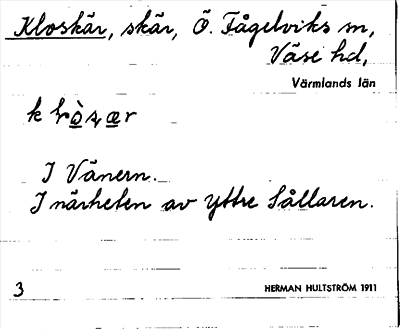 Kloskär, skär, Ö. Fågelviks sn,
Väse hd,
Värmlands län
I Vänern.
I närheten av Yttre Sållaren.
3
HERMAN HULTSTRÖM 1911